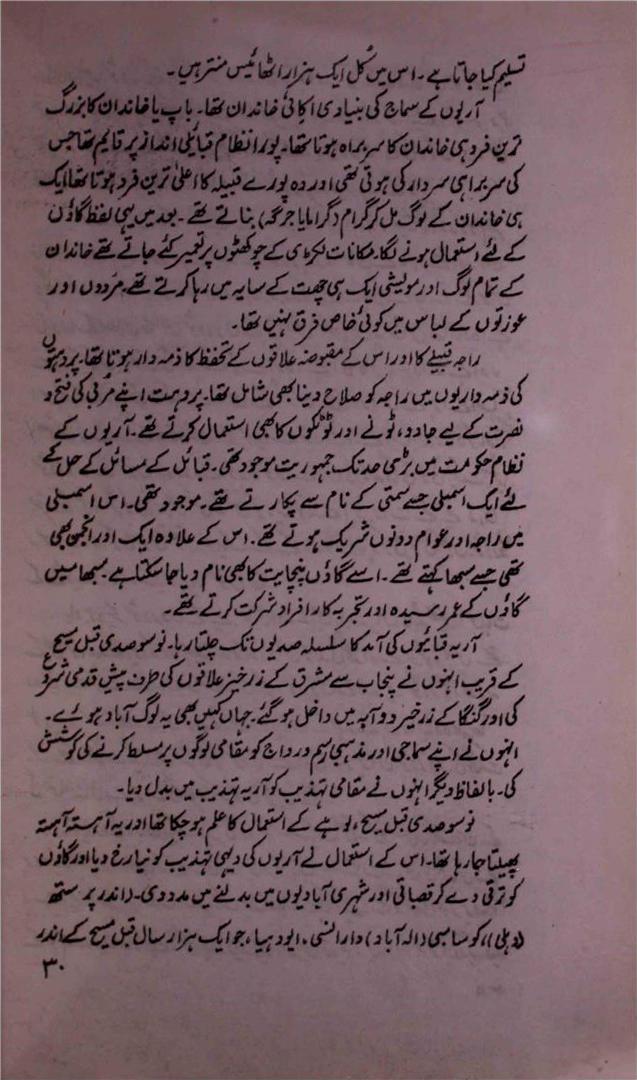 تسلیم کیا جاتا ہے۔ اس میں کُل ایک ہزار اٹھائیس منتر ہیں۔
آریوں کے سماج کی بنیادی اکائی خاندان تھا۔ باپ یا خاندان کا بزرگ
ترین فرد ہی خاندان کا سربراہ ہوتا تھا۔ پورا نظام قبائیلی انداز پر قایم تھا جس
کی سربراہی سردار کی ہوتی تھی اور وہ پورے قبیلہ کا اعلیٰ ترین فرد ہوتا تھا ایک
ہی خاندان کے لوگ مل کر گرام (گراما یا جرگہ) بناتے تھے۔ بعد میں یہی لفظ گاؤں
کے لئے استعمال ہونے لگا۔ مکانات لکڑی کے چوکھٹوں پر تعمیر کئے جاتے تھے خاندان
کے تمام لوگ اور مویشی ایک ہی چھت کے سایہ میں رہا کرتے تھے۔ مردوں اور
عورتوں کے لباس میں کوئی خاص فرق نہیں تھا۔
راجہ قبیلے کا اور اس کے مقبوضہ علاقوں کے تحفظ کا ذمہ دار ہوتا تھا۔ پروہتوں
کی ذمہ داریوں میں راجہ کو صلاح دینا بھی شامل تھا۔ پروہت اپنے مُربی کی فتح و
نصرت کے لیے جادو، ٹونے اور ٹوٹکوں کا بھی استعمال کرتے تھے۔ آریوں کے
نظام حکومت میں بڑی حد تک جمہوریت موجود تھی۔ قبائل کے مسائل کے حل کے
لئے ایک اسمبلی جسے سمتی کے نام سے پکارتے تھے۔ موجود تھی۔ اس اسمبلی
میں راجہ اور عوام دونوں شریک ہوتے تھے۔ اس کے علاوہ ایک اور انجمن بھی
تھی جسے سبھا کہتے تھے۔ اسے گاؤں پنچایت کا بھی نام دیا جا سکتا ہے۔ سبھا میں
گاؤں کے عمر رسیدہ اور تجربہ کار افراد شرکت کرتے تھے۔
آریہ قبائیوں کی آمد کا سلسلہ صدیوں تک چلتا رہا۔ نو سو صدی قبل مسیح
کے قریب انہوں نے پنجاب سے مشرق کے زرخیز علاقوں کی طرف پیش قدمی شروع
کی اور گنگا کے زرخیز دو آبہ میں داخل ہو گئے۔ جہاں کہیں بھی یہ لوگ آباد ہوئے۔
انہوں نے اپنے سماجی اور مذہبی رسم و رواج کو مقامی لوگوں پر مسلط کرنے کی کوشش
کی۔ بالفاظ دیگر انہوں نے مقامی تہذیب کو آریہ تہذیب میں بدل دیا۔
نو سو صدی قبل مسیح، لوہے کے استعمال کا علم ہو چکا تھا اور یہ آہستہ آہستہ
پھیلتا جا رہا تھا۔ اس کے استعمال نے آریوں کی دیہی تہذیب کو نیا رخ دیا اور گاؤں
کو ترقی دے کر قصباتی اور شہری آبادیوں میں بدلنے میں مدد دی۔ (اندر پرستھ
(دہلی))، کوسامبی (الہ آباد) وارانسی، ایودھیا، جو ایک ہزار سال قبل مسیح کے اندر
۳۰